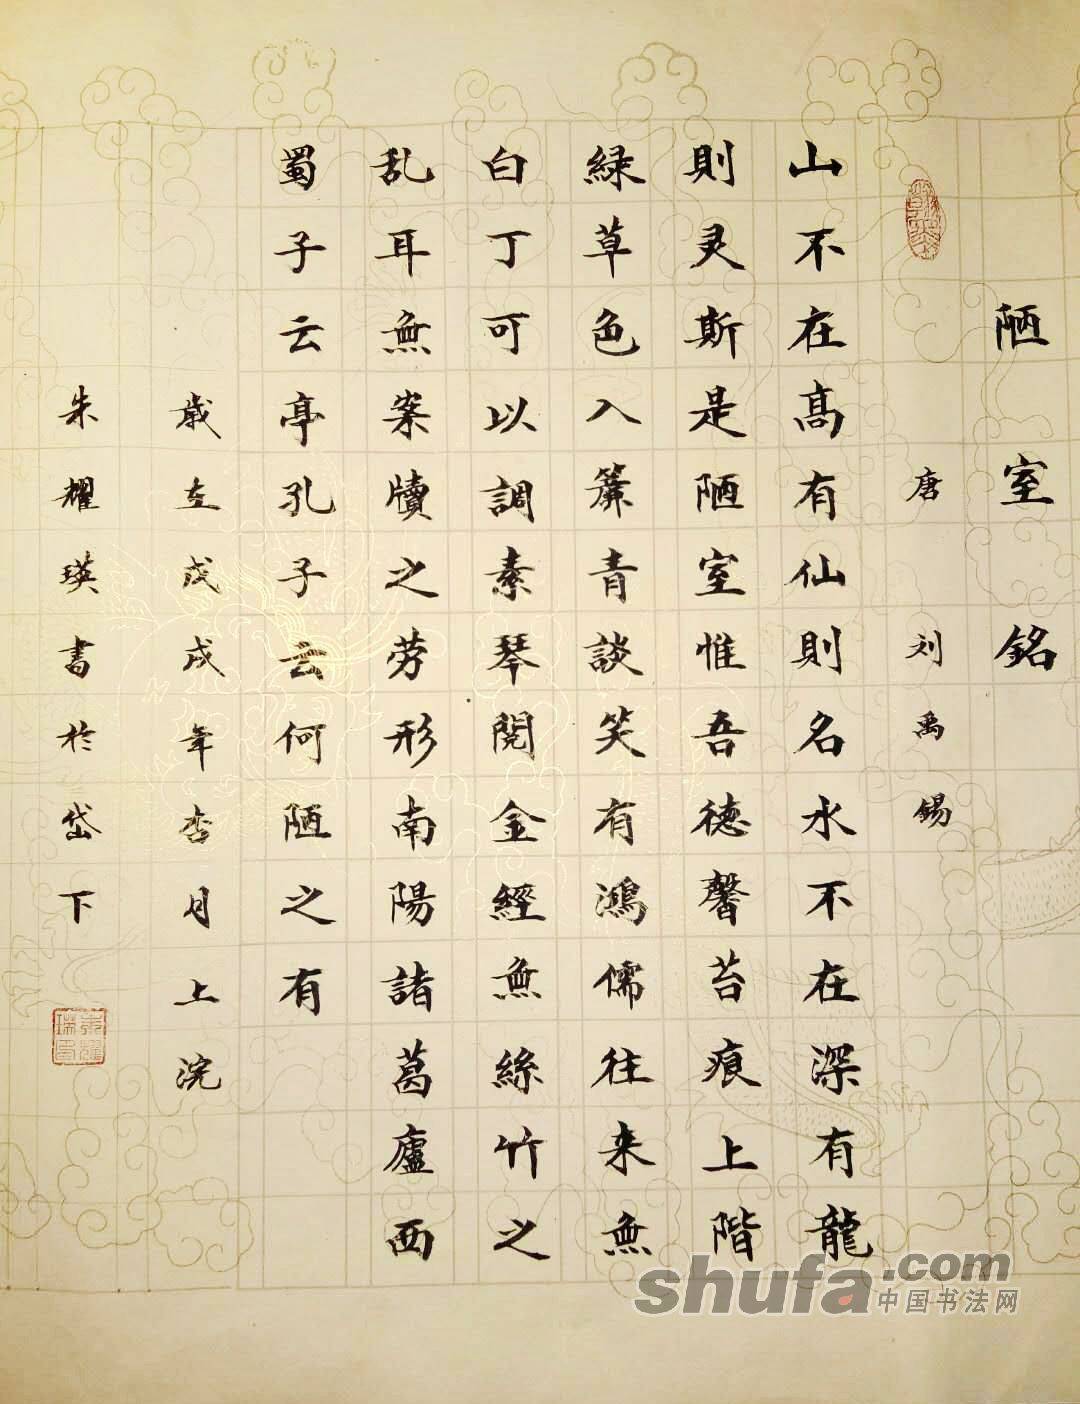 陋室銘
唐 刘禹錫
山不在髙有仙則名水不在深有龍
則灵斯是陋室惟吾德馨苔痕上階
緑草色入簾青談笑有鴻儒往来無
白丁可以調素琴閲金經無絲竹之
乱耳無案牘之劳形南陽諸葛廬西
蜀子云亭孔子云何陋之有
歲在戊戌年杏月上浣
朱耀瑛書於岱下
shufa.com
中国书法网